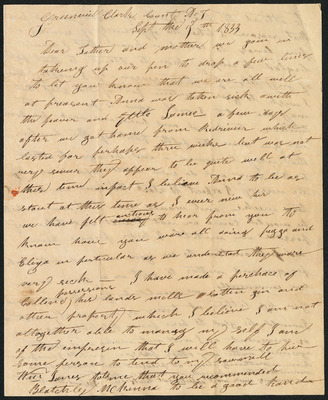 Greenvill Clark County
Sept the 9th 1833
Dear Father and mother we gain in
takeing up our pen to drop a few lines
to let you know that we are all well
at preasant David was taken sick with
the fever and a few days
after we got home from which
lasted for perhaps three weeks but was not
very severe they appear to be quite well at
this time infact I believe David to be as
stout at this time as I ever new him
we have felt anctious to hear from you to
know how you ware all doing
Eliza in particular as we understand they ware
very sick I have made a perchace of
possessions
his lands mills cotton gin and
other property which I believe I am not
altogether able to manage my self I am
of the that I will have to hier
some person to tend to my sawmill
James told me that you recommended
McKinna to be a good hand